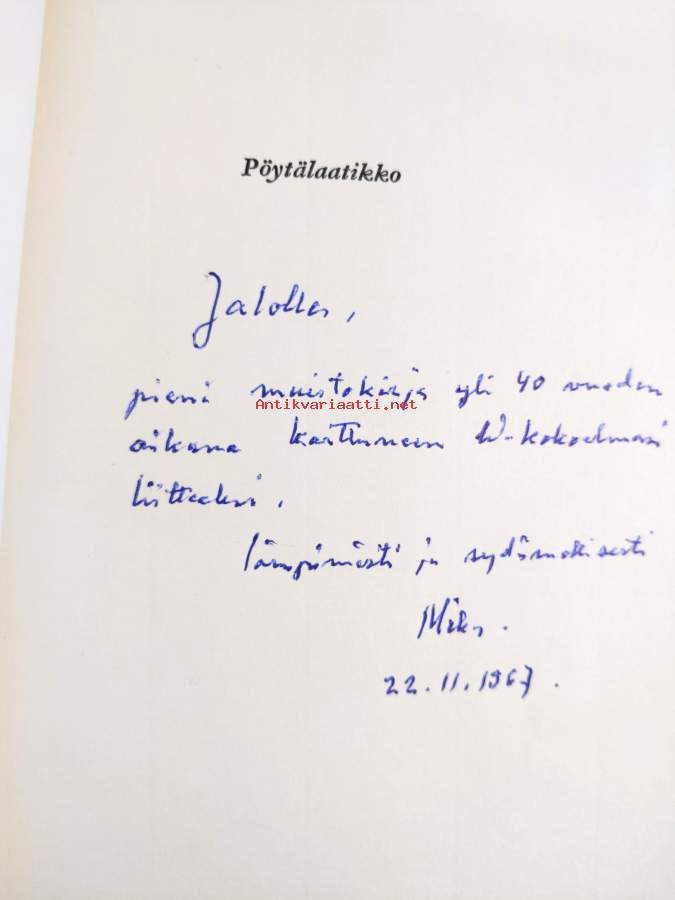 Pöytälaatikko
Jalolle,
pieni muistokirja yli 40 vuoden
Antikvariaatti.net
aikana karttuneen W-kokoelmasi
liitteeksi.
lämpimästi ja sydämellisesti
Mika.
22.11.1967.